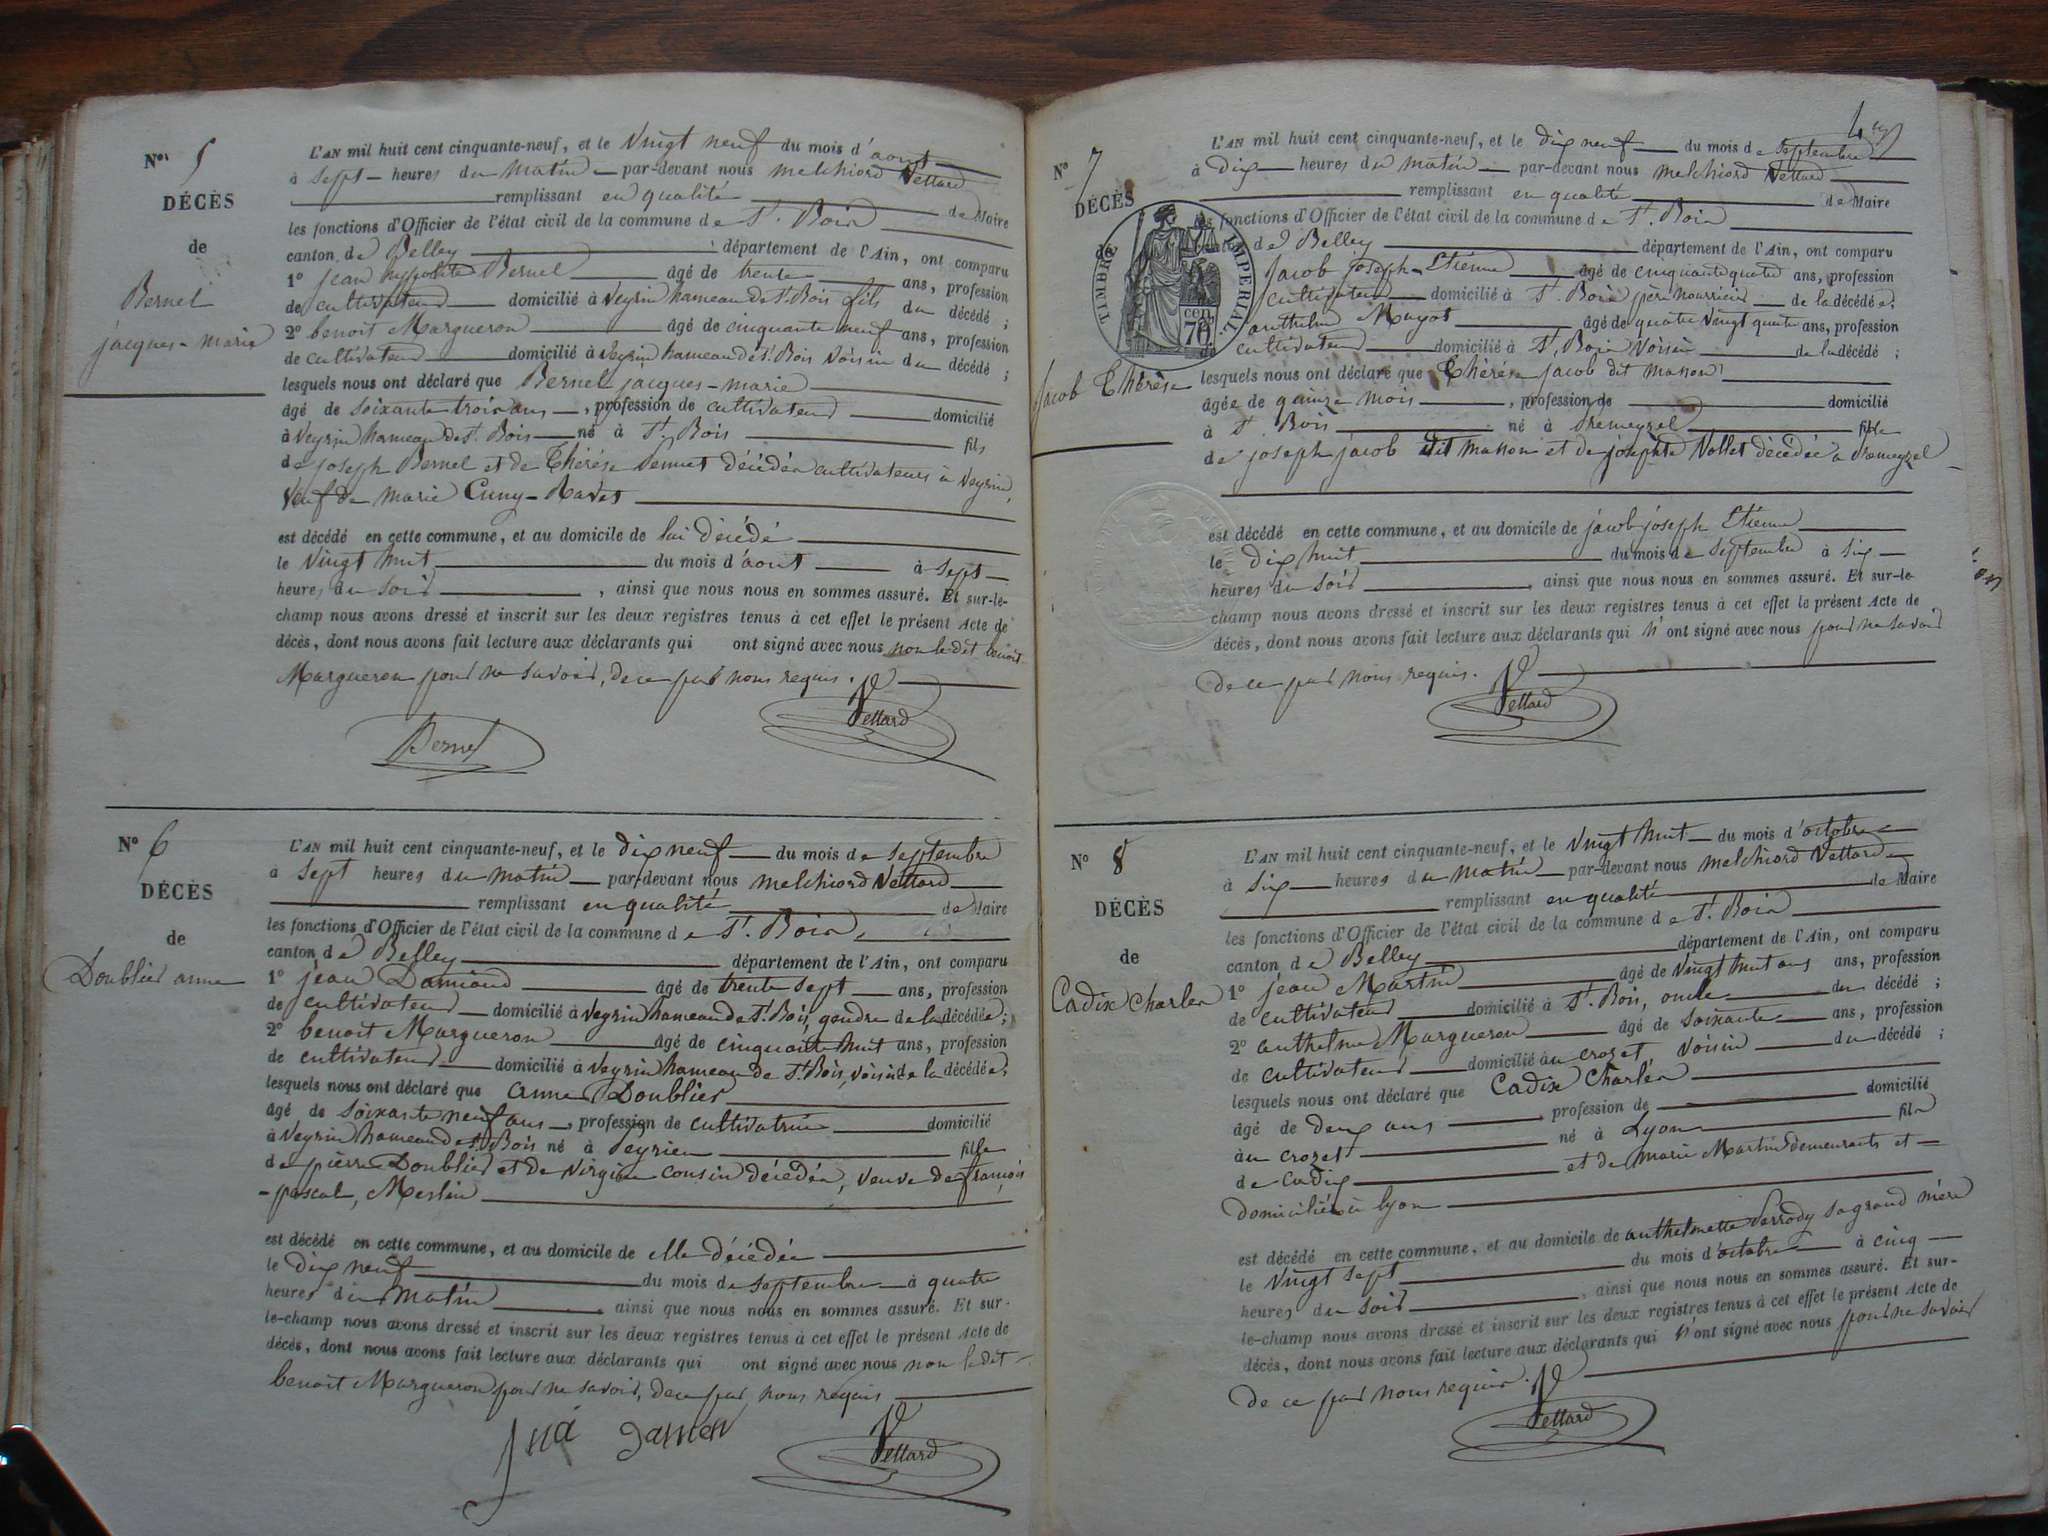 N° 5
DÉCÈS
de
Bernel
jacques-marie
L'AN mil huit cent cinquante-neuf, et le vingt neuf du mois d'aout
à sept heures du matin par-devant nous melchiord Vettard
remplissant en qualité de Maire
les fonctions d'Officier de l'état civil de la commune de St. Bois
canton de Belley département de l'Ain, ont comparu
1° jean hyppolite Bernel âgé de trente ans, profession
de cultivateur domicilié à Veyrin hameau de St. Bois fils du décédé ;
2° benoit Margueron âgé de cinquante neuf ans, profession
de cultivateur domicilié à Veyrin hameau de St. Bois voisin du décédé ;
lesquels nous ont déclaré que Bernel jacques-marie
âgé de soixante trois ans, profession de cultivateur domicilié
à Veyrin hameau de St. Bois né à St. Bois fils
de joseph Bernel et de Thérése décédés cultivateurs à Veyrin,
veuf de marie Cuny-Ravet
est décédé en cette commune, et au domicile de lui décédé
le vingt huit du mois d'aout à sept
heures du soir, ainsi que nous nous en sommes assuré. Et sur-le-
champ nous avons dressé et inscrit sur les deux registres tenus à cet effet le présent Acte de
décès, dont nous avons fait lecture aux déclarants qui ont signé avec nous non le dit benoit
Margueron pour ne savoir, de ce par nous requis.
Bernel
Vettard
N° 6
DÉCÈS
de
Doublier anne
L'AN mil huit cent cinquante-neuf, et le dix neuf du mois de septembre
à sept heures du matin par-devant nous melchiord Vettard
remplissant en qualité de Maire
les fonctions d'Officier de l'état civil de la commune de St. Bois
canton de Belley département de l'Ain, ont comparu
1° jean Damiand âgé de trente sept ans, profession
de cultivateur domicilié à Veyrin hameau de St. Bois, gendre de la décédée ;
2° benoit Margueron âgé de cinquante huit ans, profession
de cultivateur domicilié à Veyrin hameau de St. Bois, voisin de la décédée ;
lesquels nous ont déclaré que anne Doublier
âgé de soixante neuf ans, profession de cultivatrice domicilié
à Veyrin hameau de St. Bois né à Peyrieu fille
de pierre Doublier et de Virginie cousin décédés, veuve de françois
-pascal, Merlin
est décédé en cette commune, et au domicile de elle décédée
le dix neuf du mois de septembre à quatre
heures du matin, ainsi que nous nous en sommes assuré. Et sur-
le-champ nous avons dressé et inscrit sur les deux registres tenus à cet effet le présent Acte de
décès, dont nous avons fait lecture aux déclarants qui ont signé avec nous non le dit
benoit Margueron pour ne savoir, de ce par nous requis
Vettard
N° 7
DÉCÈS
de
Jacob Thérèse
TIMBRE IMPÉRIAL
70 cen.
L'AN mil huit cent cinquante-neuf, et le dix neuf du mois de septembre
à dix heures du matin par-devant nous melchiord Vettard
remplissant en qualité de Maire
les fonctions d'Officier de l'état civil de la commune de St. Bois
canton de Belley département de l'Ain, ont comparu
Jacob joseph-Etiénne âgé de cinquante quatre ans, profession
cultivateur domicilié à St. Bois père nourricier de la décédée ;
anthelme Mayot âgé de quatre vingt quatre ans, profession
de cultivateur domicilié à St. Bois voisin de la décédé ;
lesquels nous ont déclaré que Thérése jacob dit masson
âgée de quinze mois, profession de domicilié
à St. Bois né à Prémeyzel fille
de joseph jacob dit masson et de joséphte Vollet décédée à Prémeyzel
est décédé en cette commune, et au domicile de jacob joseph Etiénne
le dix huit du mois de septembre à six
heures du soir, ainsi que nous nous en sommes assuré. Et sur-le-
champ nous avons dressé et inscrit sur les deux registres tenus à cet effet le présent Acte de
décès, dont nous avons fait lecture aux déclarants qui n'ont signé avec nous pour ne savoir
de ce par nous requis.
Vettard
N° 8
DÉCÈS
de
Cadix Charles
L'AN mil huit cent cinquante-neuf, et le vingt huit du mois d'octobre
à six heures du matin par-devant nous melchiord Vettard
remplissant en qualité de Maire
les fonctions d'Officier de l'état civil de la commune de St. Bois
canton de Belley département de l'Ain, ont comparu
1° jean Martin âgé de vingt huit ans ans, profession
de cultivateur domicilié à St. Bois, oncle du décédé ;
2° anthelme Margueron âgé de soixante ans, profession
de cultivateur domicilié au crozet, voisin du décédé ;
lesquels nous ont déclaré que Cadix Charles
âgé de deux ans, profession de domicilié
au crozet né à Lyon fils
de Cadix et de marie Martin demeurants et
domiciliés à lyon
est décédé en cette commune, et au domicile de anthelmette Perrody sa grand mère
le vingt sept du mois d'octobre à cinq
heures du soir, ainsi que nous nous en sommes assuré. Et sur-
le-champ nous avons dressé et inscrit sur les deux registres tenus à cet effet le présent Acte de
décès, dont nous avons fait lecture aux déclarants qui n'ont signé avec nous pour ne savoir
de ce par nous requis.
Vettard